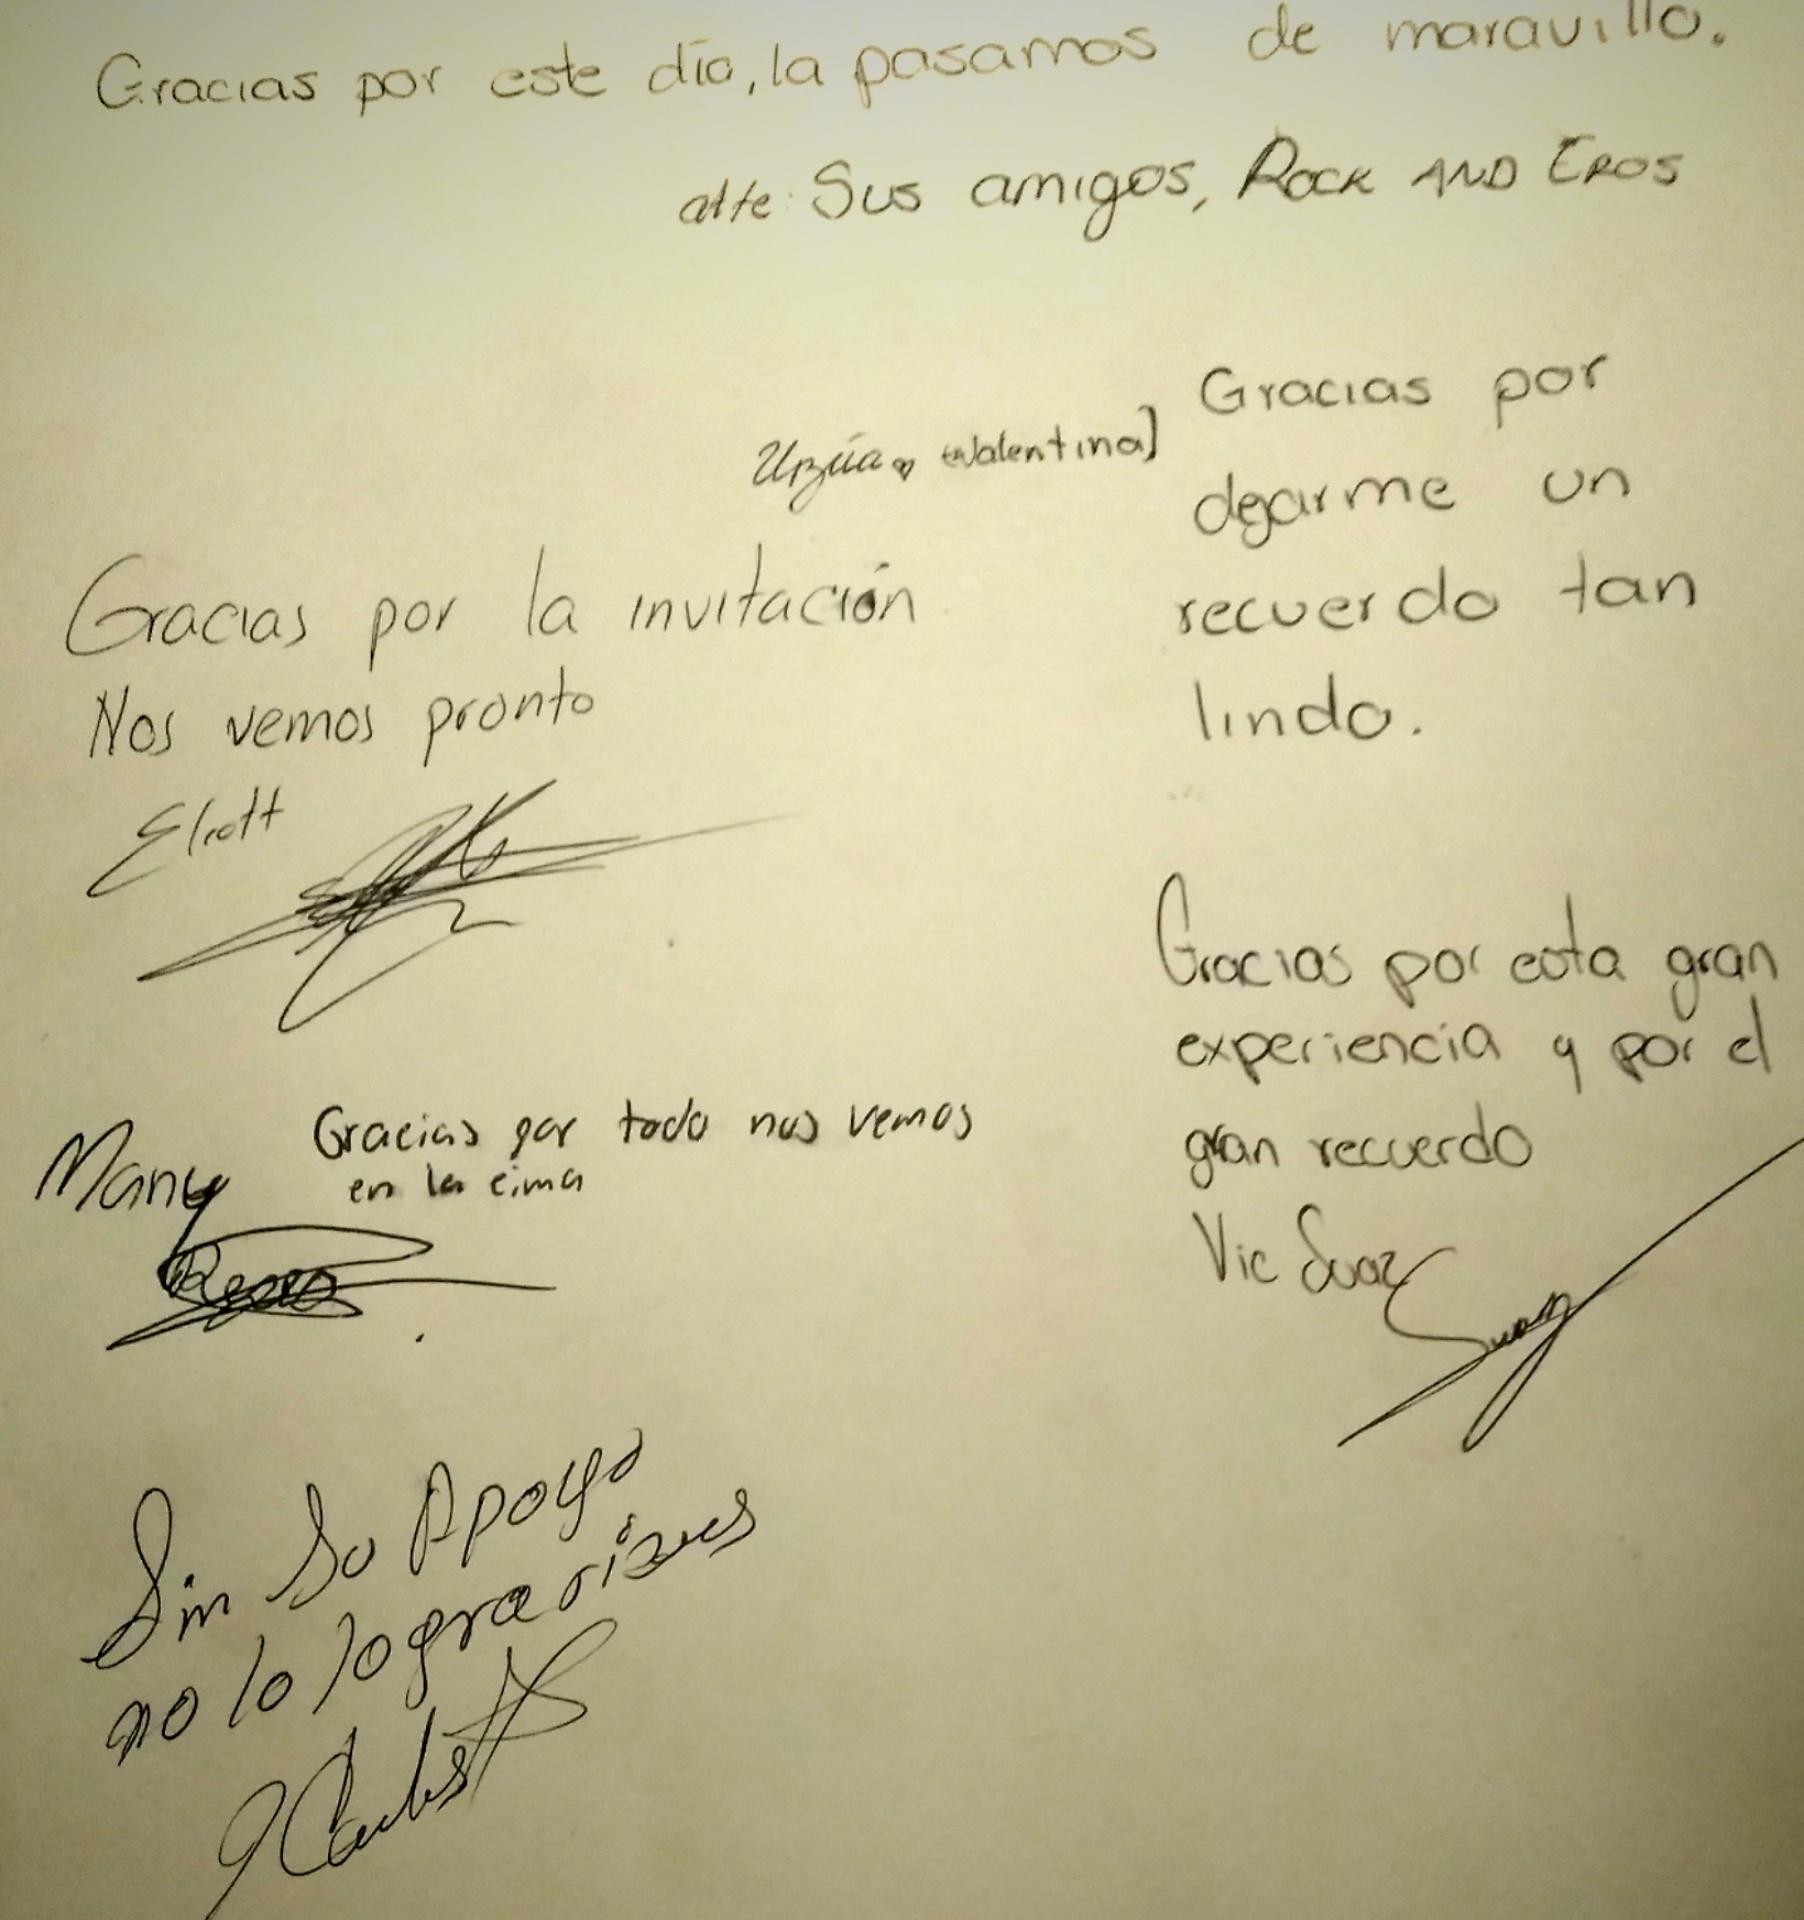 Gracias por este día, la pasamos de maravilla.
atte: Sus amigos, ROCK AND EROS
Urzúa [Valentina]
Gracias por
dejarme un
recuerdo tan
lindo.
Gracias por la invitación
Nos vemos pronto
Eliott
Gracias por esta gran
experiencia y por el
gran recuerdo
Vic Suaz
Many
Gracias por todo nos vemos
en la cima
Sin su Apoyo
no lo lograríamos